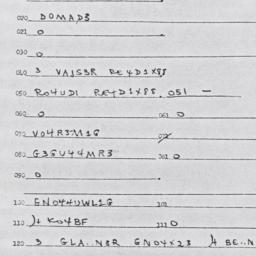 020 DOMAD3
021 0
030 0
040 3 VAJSBR RE4D1X88
050 RO4UDI RE4D1X88. 051 —
060 0 061 0
070 VO4R3M1G 072
080 G3GU44MR3 081 0
090 0
100 GNO44UWL1G 101
110 KO4BF 111 0
120 3 GLA. N3R GNO4X23 BE..N